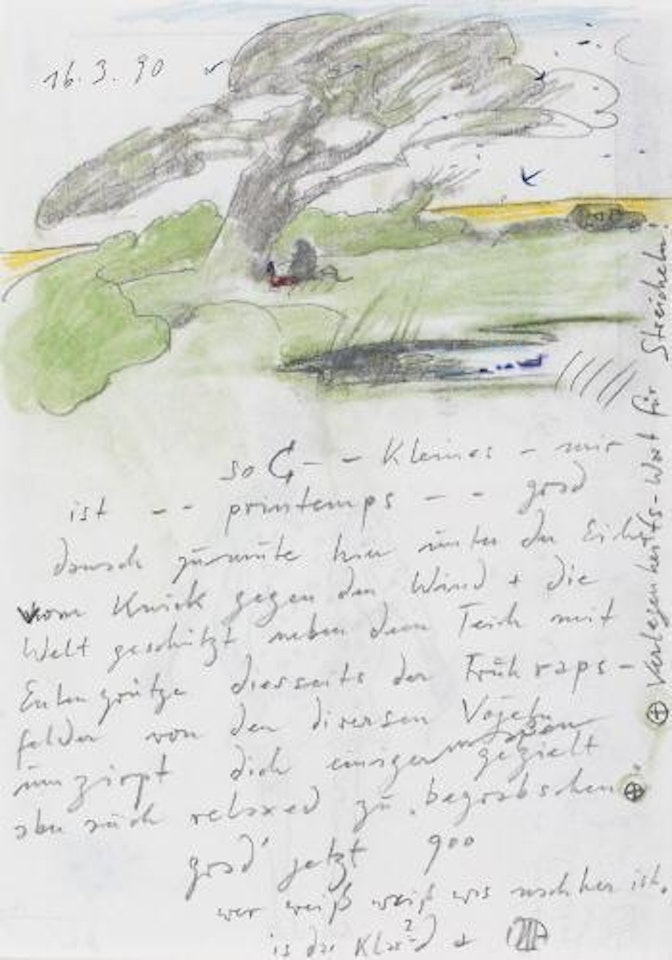 16.3.90
so - - Kleines - mir
ist - - printemps - - grad
danach zumute hier unter der Eiche
vom Knick gegen den Wind + die
Welt geschützt neben dem Teich mit
Entengrütze diesseits der Frühraps-
felder von den diversen Vögeln
umzirpt dich einigermassen gezielt
aber auch relaxed zu 'begrabschen ⊕
grad' jetzt 900
wer weiß was nachher ist.
is da klar? +
⊕ Verlegenheits-Wort für Streicheln!